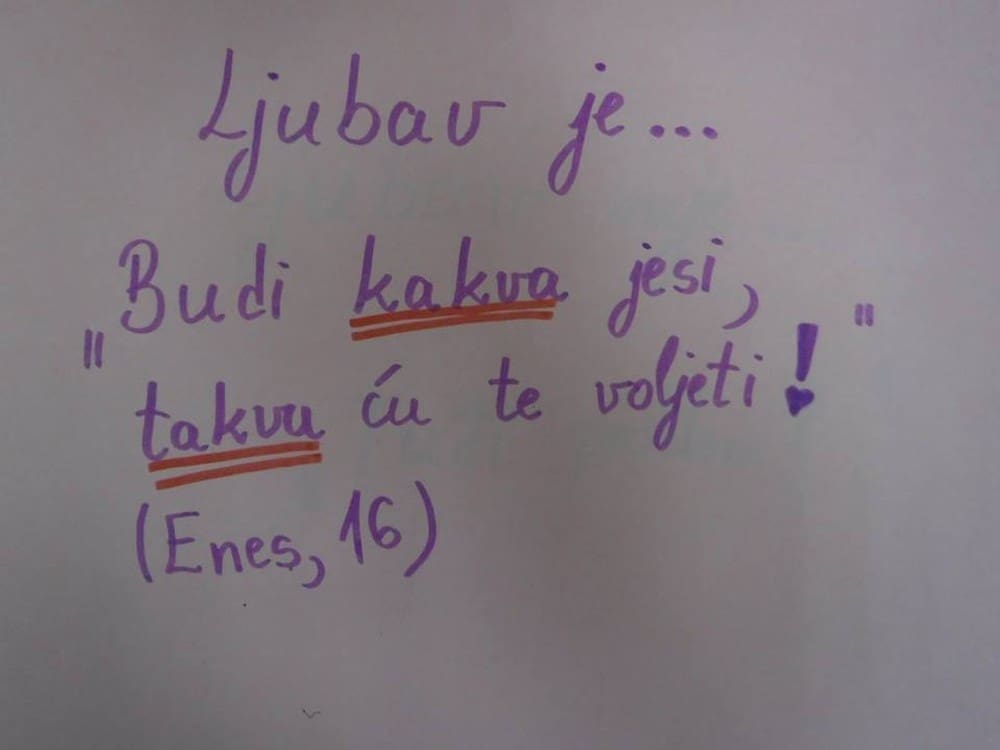 Ljubav je...
"Budi kakva jesi,
takvu ću te voljeti!"
(Enes, 16)